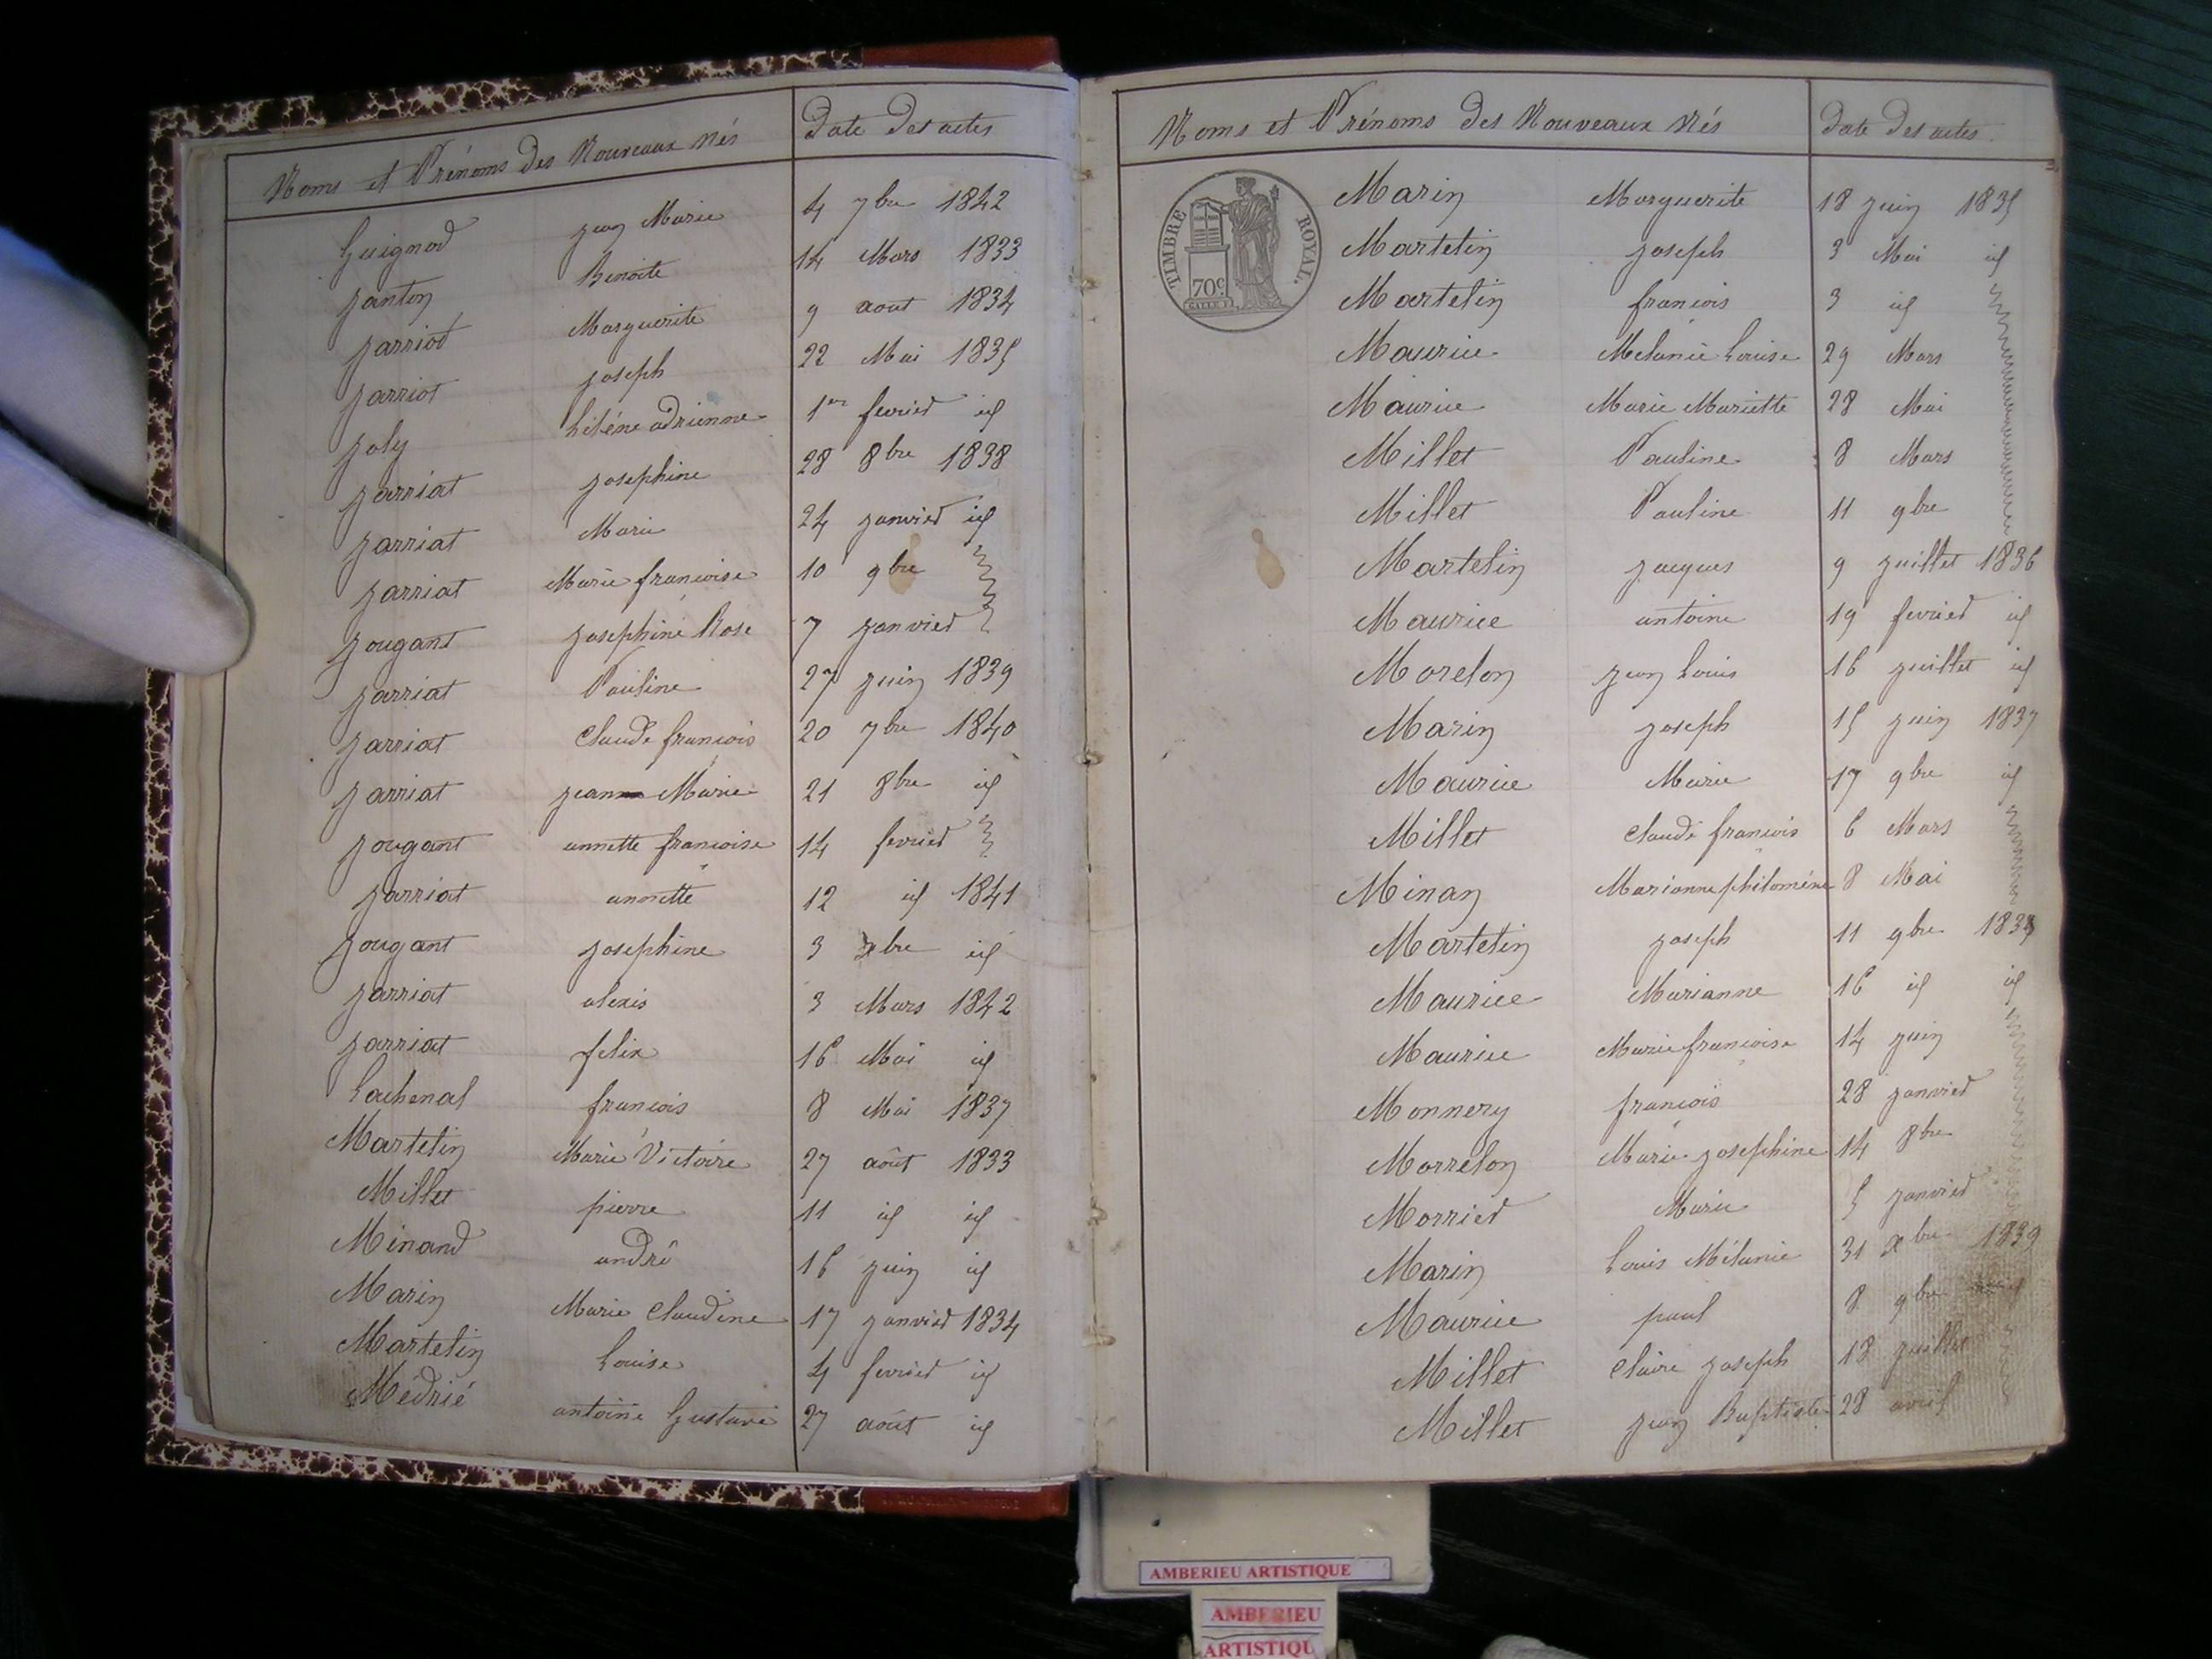 Noms et Prénoms des Nouveaux Nés Date des actes
Guignod jean Marie 4 7bre 1842
janton Benoite 14 Mars 1833
jarriod Marguerite 9 aout 1834
jarriot joseph 22 Mai 1835
joly héléne adrienne 1er fevrier id
jarriat josephine 28 8bre 1838
jarriat Marie 24 janvier id
jarriat Marie francoise 10 9bre
jougant josephine Rose 7 janvier
jarriat Pauline 27 juin 1839
jarriat Claude francois 20 7bre 1840
jarriat jean Marie 21 8bre id
jougant annette francoise 14 fevrier
jarriat annette 12 id 1841
jougant josephine 3 xbre id
jarriat alexis 3 Mars 1842
jarriat felix 16 Mai id
Lachenal francois 8 Mai 1837
Martelin Marie Victoire 27 août 1833
Millet pierre 11 id id
Minand andré 16 juin id
Marin Marie Claudine 17 janvier 1834
Martelin Louise 4 fevrier id
Médrié antoine Gustave 27 août id
Noms et Prénoms des Nouveaux Nés Date des actes
TIMBRE ROYAL.
70c
Marin Marguerite 18 juin 1835
Martelin joseph 3 Mai id
Martelin francois 3 id
Maurice Melanie Louise 29 Mars
Maurice Marie Mariette 28 Mai
Millet Pauline 8 Mars
Millet Pauline 11 9bre
Martelin jacques 9 juillet 1836
Maurice antoine 19 fevrier id
Morelon jean Louis 16 juillet id
Marin joseph 15 juin 1837
Maurice Marie 17 9bre id
Millet Claude francois 6 Mars
Minan Marianne philoméne 8 Mai
Martelin joseph 11 9bre
Maurice Marianne 16 id id
Maurice Marie francoise 14 juin
Monnery francois 28 janvier
Morrelon Marie josephine 14 8bre
Morrier Marie 5 janvier
Marin Louis Mélanie 31 xbre 1839
Maurice paul 8 9bre
Millet Claire joseph 18 juillet
Millet jean Baptiste 28 avril
AMBERIEU ARTISTIQUE
AMBERIEU
ARTISTIQU